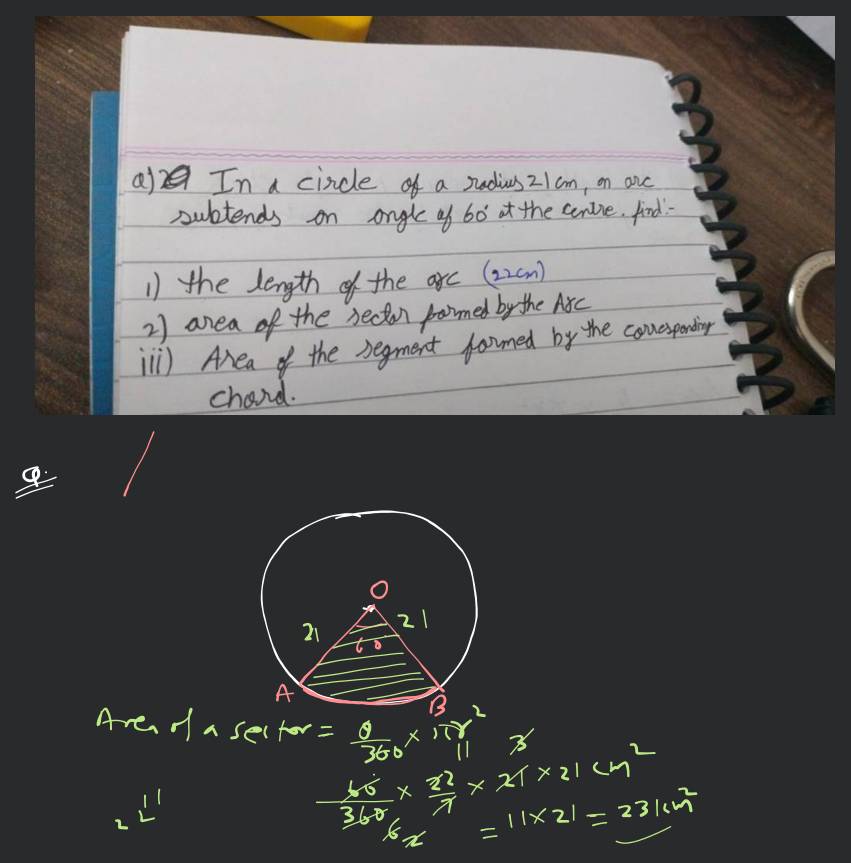 a) In a circle of a radius 21 cm, an arc
subtends an angle of 60° at the centre. find:-
1) the length of the arc (22cm)
2) area of the sector formed by the Arc
iii) Area of the segment formed by the corresponding
chord.
Q.
O
21 21
60
A B
Area of a sector = θ/360 × πr²
60/360 × 22/7 × 21 × 21 cm²
11 3
6 2
= 11×21 = 231cm²